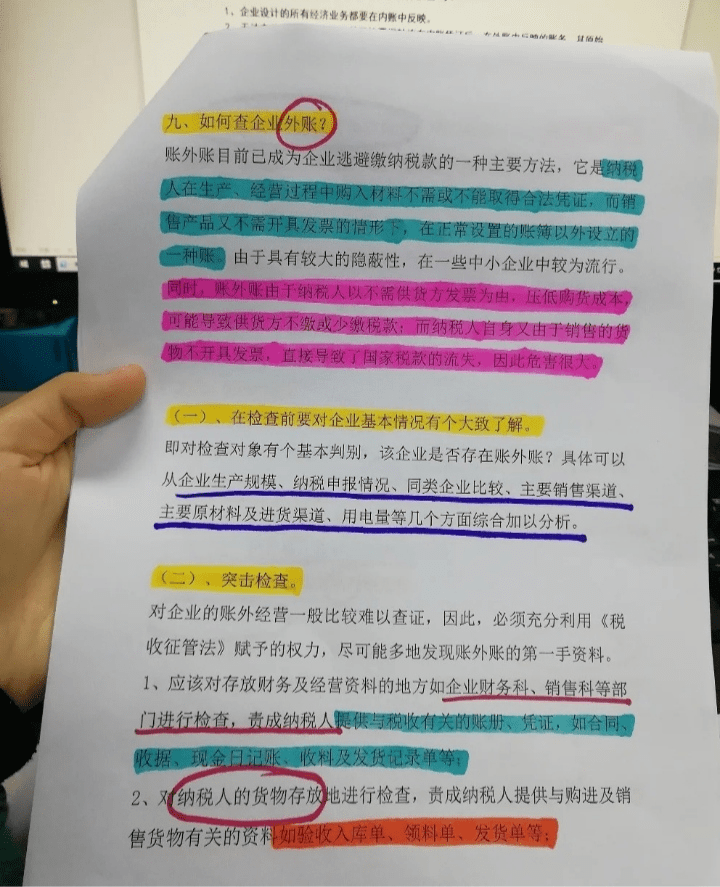 1、企业设计的所有经济业务都要在内账中反映。
九、如何查企业外账？
账外账目前已成为企业逃避缴纳税款的一种主要方法，它是纳税
人在生产、经营过程中购入材料不需或不能取得合法凭证，而销
售产品又不需开具发票的情形下，在正常设置的账簿以外设立的
一种账。由于具有较大的隐蔽性，在一些中小企业中较为流行。
同时，账外账由于纳税人以不需供货方发票为由，压低购货成本，
可能导致供货方不缴或少缴税款；而纳税人自身又由于销售的货
物不开具发票，直接导致了国家税款的流失，因此危害很大。
（一）、在检查前要对企业基本情况有个大致了解。
即对检查对象有个基本判别，该企业是否存在账外账？具体可以
从企业生产规模、纳税申报情况、同类企业比较、主要销售渠道、
主要原材料及进货渠道、用电量等几个方面综合加以分析。
（二）、突击检查。
对企业的账外经营一般比较难以查证，因此，必须充分利用《税
收征管法》赋予的权力，尽可能多地发现账外账的第一手资料。
1、应该对存放财务及经营资料的地方如企业财务科、销售科等部
门进行检查，责成纳税人提供与税收有关的账册、凭证，如合同、
收据、现金日记账、收料及发货记录单等；
2、对纳税人的货物存放地进行检查，责成纳税人提供与购进及销
售货物有关的资料如验收入库单、领料单、发货单等；